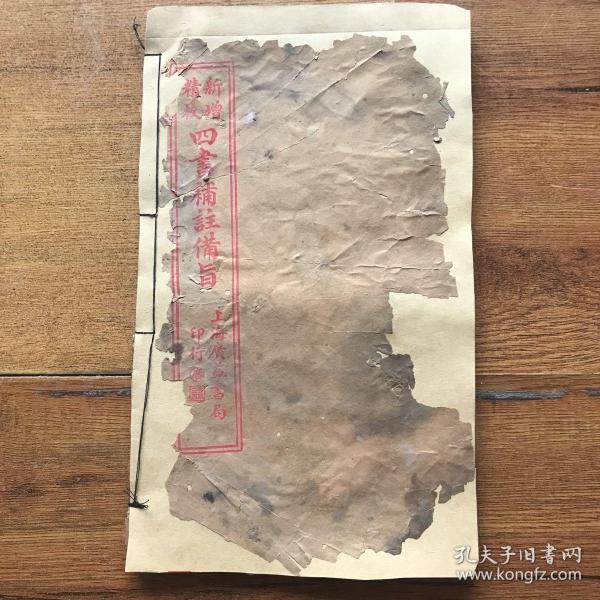 新增
精校
四書補註備旨
上海廣益書局
印行
孔夫子旧书网
www.kongfz.com